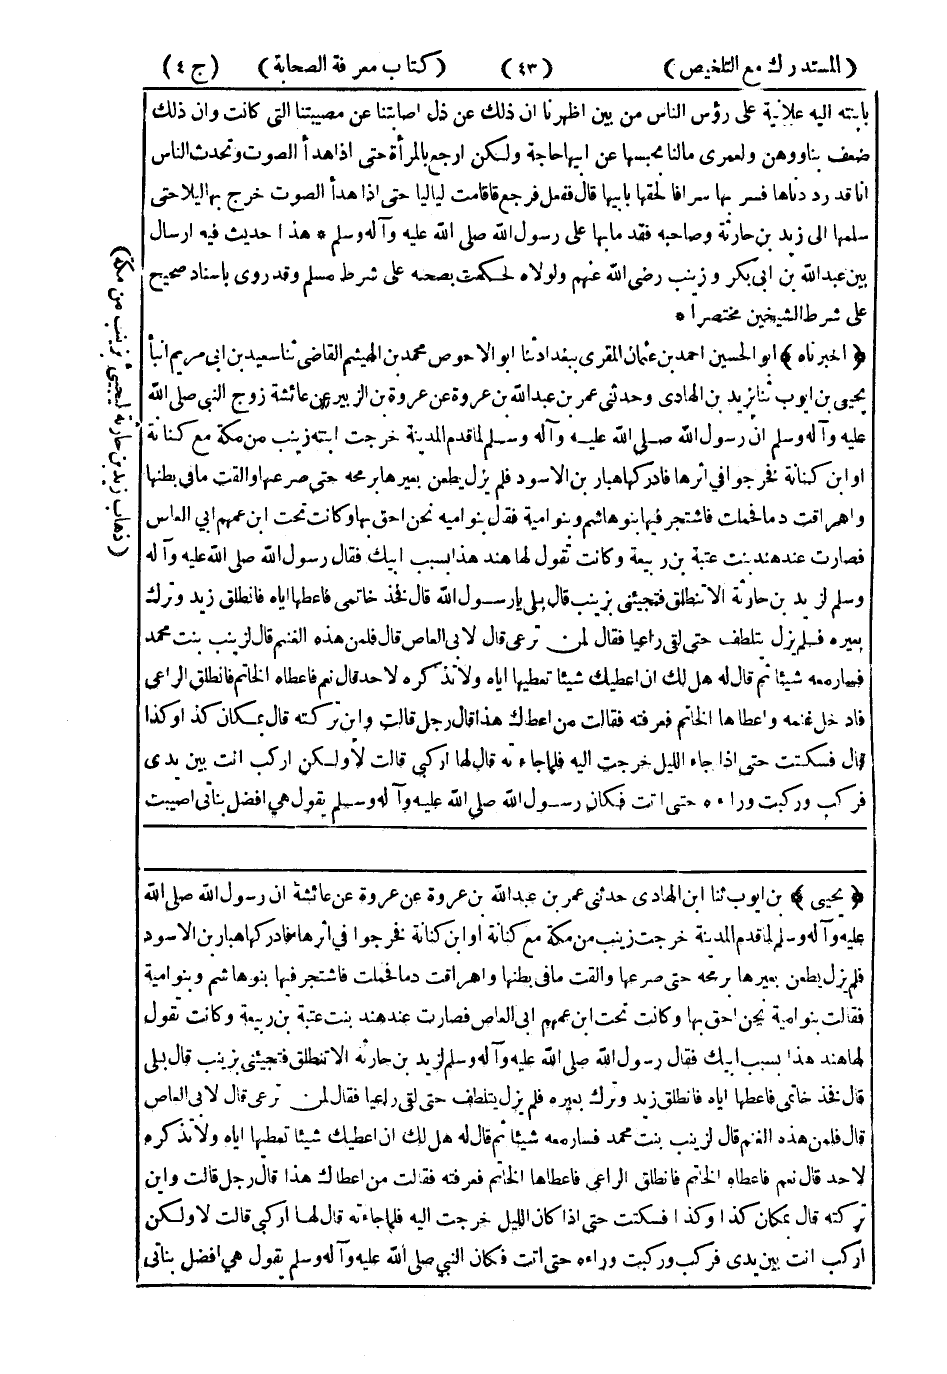 (المستدرك مع التلخيص) (٤٣) (كتاب معرفة الصحابة) (ج ٤)
بابنته اليه علانية على رؤس الناس من بين اظهرنا ان ذلك عن ذل اصابتنا عن مصيبتنا التى كانت وان ذلك
ضعف بنا ووهن ولعمرى مالنا بحبسها عن ابيها حاجة ولكن ارجع بالمرأة حتى اذا هدأ الصوت وتحدث الناس
انا قد رددناها فسر بها سرا فالحقها بابيها قال ففعل فرجع فاقامت ليالبا حتى اذا هدأ الصوت خرج بها ليلا حتى
سلمها الى زيد بن حارثة وصاحبه فقد ما بها على رسول الله صلى الله عليه وآله وسلم * هذا حديث فيه ارسال
بين عبدالله بن ابى بكر و زينب رضى الله عنهم ولولاه لحكمت بصحه على شرط مسلم وقد روى باسناد صحيح
على شرط الشيخين مختصرا *
﴿ اخبرناه ﴾ ابو الحسين احمد بن عثمان المقرى ببغداد ثنا ابو الاحوص محمد بن الهيثم القاضى ثنا سعيد بن ابى مريم انبأ
يحيى بن ايوب ثنا يزيد بن الهادى وحدثنى عمر بن عبدالله بن عروة عن عروة بن الزبير عن عائشة زوج النبى صلى الله
عليه وآله وسلم ان رسول الله صلى الله عليه وآله وسلم لما قدم المدينة خرجت ابنته زينب من مكة مع كنانة
او ابن كنانة فخرجوا فى اثرها فادركها هبار بن الاسود فلم يزل يطعن بعيرها برمحه حتى صرعها والقت ما فى بطنها
واهراقت دما فحملت فاشتجر فيها بنو هاشم وبنو امية فقل بنو اميه نحن احق بها وكانت تحت ابن عمهم ابي العاس
فصارت عند هند بنت عتبة بن ربيعة وكانت تقول لها هند هذا بسبب ابيك فقال رسول الله صلى الله عليه وآله
وسلم لزيد بن حارثة الا تنطلق فتجيئنى بزينب قال بلى يا رسول الله قال فخذ خاتمى فاعطها اياه فانطلق زيد وترك
بعيره فلم يزل يتلطف حتى لقى راعيا فقال لمن ترعى قال لابى العاص قال فلمن هذه الغنم قال لزينب بنت محمد
فسار معه شيئا ثم قال له هل لك ان اعطيك شيئا تعطيها اياه ولا تذكره لاحد قال نعم فاعطاه الخاتم فانطلق الراعى
فادخل غنمه واعطاها الخاتم فعرفته فقالت من اعطاك هذا قال رجل قالت واين تركته قال بمكان كذا وكذا
قال فسكتت حتى اذا جاء الليل خرجت اليه فلما جاءته قال لها اركبى قالت لا ولكن اركب انت بين يدى
فركب وركبت وراءه حتى اتت فكان رسول الله صلى الله عليه وآله وسلم يقول هي افضل بناتى اصيبت
﴿ يحيى ﴾ بن ايوب ثنا ابن الهادى حدثنى عمر بن عبدالله بن عروة عن عروة عن عائشة ان رسول الله صلى الله
عليه وآله وسلم لما قدم المدينة خرجت زينب من مكة مع كنانة او ابن كنانة فخرجوا فى اثرها فادركها هبار بن الاسود
فلم يزل يطعن بعيرها برمحه حتى صرعها والقت ما فى بطنها واهراقت دما فحملت فاشتجر فيها بنو هاشم وبنو امية
فقالت بنو امية نحن احق بها وكانت تحت ابن عمهم ابى العاص فصارت عند هند بنت عتبة بن ربيعة وكانت تقول
لها هند هذا بسبب ابيك فقال رسول الله صلى الله عليه وآله وسلم لزيد بن حارثه الا تنطلق فتجيئنى بزينب قال بلى
قال فخذ خاتمى فاعطها اياه فانطلق زيد وترك بعيره فلم يزل يتلطف حتى لقى راعيا فقال لمن ترعى قال لابى العاص
قال فلمن هذه الغنم قال لزينب بنت محمد فسار معه شيئا ثم قال له هل لك ان اعطيك شيئا تعطيها اياه ولا تذكره
لاحد قال نعم فاعطاه الخاتم فانطلق الراعى فاعطاها الخاتم فعرفته فقالت من اعطاك هذا قال رجل قالت واين
تركته قال بمكان كذا وكذا فسكتت حتى اذا كان الليل خرجت اليه فلما جاءته قال لها اركبى قالت لا ولكن
اركب انت بين يدى فركب وركبت وراءه حتى اتت فكان النبي صلى الله عليه وآله وسلم يقول هي افضل بناتى
(ذهاب زيد بن حارثة ليجيئ بزينب من مكة)